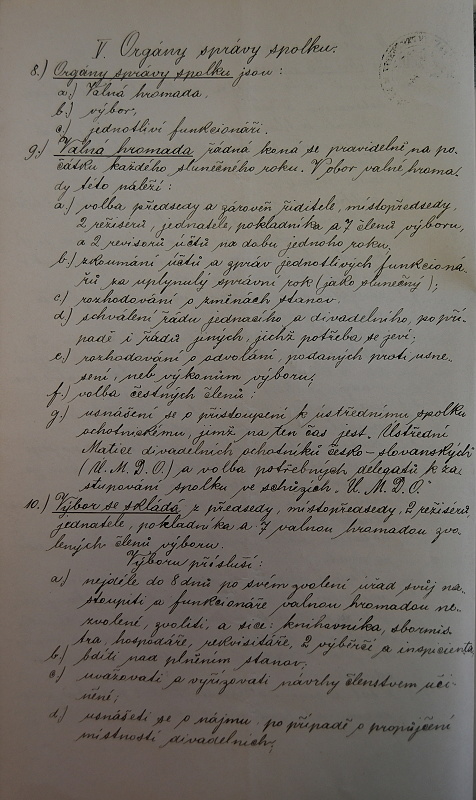 V. Orgány správy spolku.
8.) Orgány správy spolku jsou:
a.) Valná hromada.
b.) výbor,
c.) jednotliví funkcionáři.
9.) Valná hromada řádná koná se pravidelně na po-
čátku každého slunečného roku. V obor valné hroma-
dy této náleží:
a.) volba předsedy a zároveň řiditele, místopředsedy,
2 režisérů, jednatele, pokladníka a 7 členů výboru,
a 2 revisorů účtů na dobu jednoho roku.
b.) zkoumání účtů a zpráv jednotlivých funkcioná
řů za uplynulý správní rok (jako slunečný);
c.) rozhodování o změnách stanov.
d.) schválení řádu jednacího a divadelního, po pří-
padě i řádů jiných, jichž potřeba se jeví;
e.) rozhodování o odvolání, podaných proti usne-
sení, neb výkonům výboru;
f.) volba čestných členů:
g.) usnášení se o přistoupení k ústřednímu spolku
ochotnickému, jímž na ten čas jest „Ústřední
Matice divadelních ochotníků česko-slovanských"
(Ú. M. D. O.) a volba potřebných delegátů k za-
stupování spolku ve schůzích „Ú. M. D. O."
10.) Výbor se skládá z předsedy, místopředsedy, 2 režisérů
jednatele, pokladníka a 7 valnou hromadou zvo-
lených členů výboru.
Výboru přísluší:
a.) nejdéle do 8 dnů po svém zvolení úřad svůj na-
stoupiti a funkcionáře valnou hromadou ne-
zvolené, zvoliti, a sice: knihovníka, sbormis-
tra, hospodáře, rekvisitáře, 2 výběrčí a inspicienta
b.) bdíti nad plněním stanov;
c.) uvažovati a vyřizovati návrhy členstvem uči-
něné;
d.) usnášeti se o nájmu po případě o propůjčení
místností divadelních;